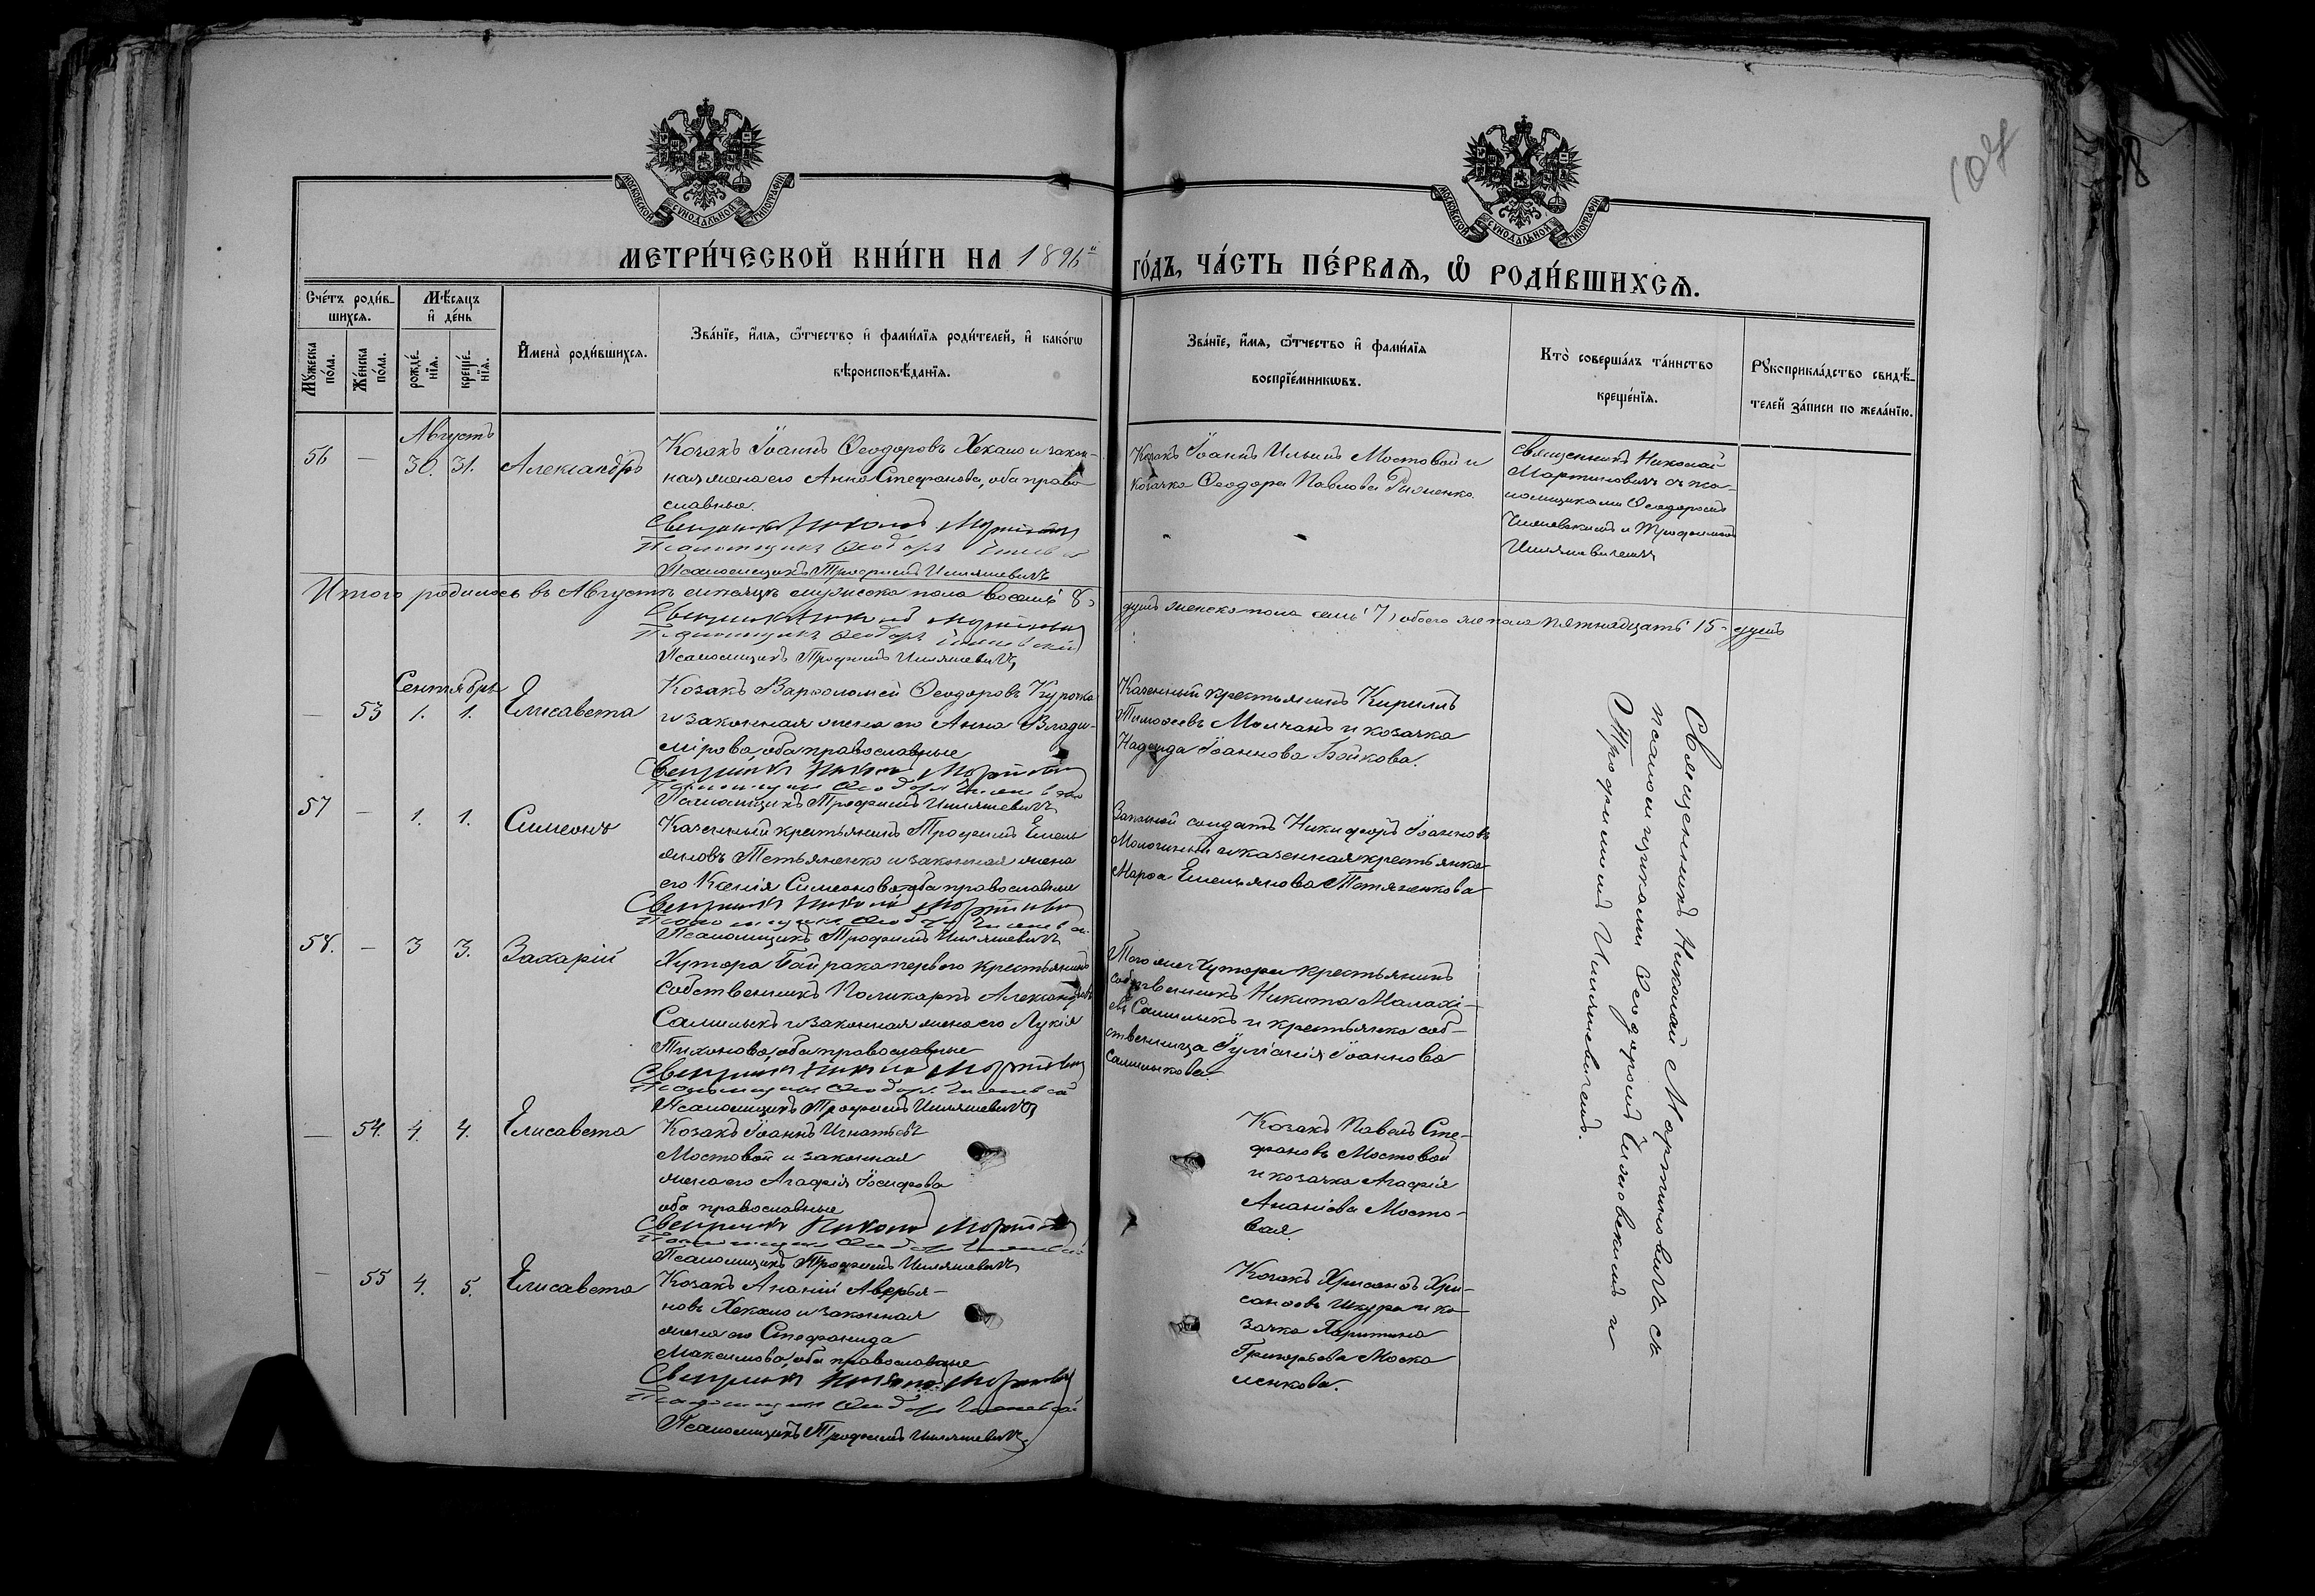 107
МОСКОВСКОЙ СУНОДАЛЬНОЙ ТИПОГРАФИИ
МОСКОВСКОЙ СУНОДАЛЬНОЙ ТИПОГРАФИИ
МЕТРИ́ЧЕСКОЙ КНИ́ГИ НА 1896й
ГО́ДЪ, ЧА́СТЬ ПЕ́РВАѦ, Ѽ РОДИ́ВШИХСѦ.
Сче́тъ роди́в-
шихсѧ.
Мѣ́сѧцъ
и҆ де́нь
Мꙋ́жеска
по́ла.
Же́нска
по́ла.
рожде́-
нїѧ.
креще́-
нїѧ.
И҆мена̀ роди́вшихсѧ.
Зва́нїе, и҆́мѧ, ѻ҆́тчество и҆ фами́лїѧ роди́телей, и҆ како́гѡ
вѣроисповѣ́данїѧ.
Зва́нїе, и҆́мѧ, ѻ҆́тчество и҆ фами́лїѧ
воспрїе́мникѡвъ.
Кто̀ соверша́лъ та́инство
креще́нїѧ.
Рꙋкоприкла́дство свидѣ́-
телей за́писи по жела́нїю.
Августъ
56 — 30. 31. Александръ
Козакъ Іоаннъ Ѳеодоровъ Хекало и закон-
ная жена его Анна Стефанова, оба право-
славные.
Священникъ Николай Мартиновичъ
Псаломщикъ Ѳеодоръ
Псаломщикъ Трофимъ Илляшевичъ
Козакъ Іоаннъ Ильинъ Мостовой и
козачка Ѳеодора Павлова
Священникъ Николай
Мартиновичъ съ пса-
ломщиками Ѳеодоромъ
и Трофимомъ
Илляшевичемъ
Итого родилось въ Августѣ мѣсяцѣ мужеска пола восемь 8,
душъ женска пола семь 7, обоего же пола пятнадцать 15 душъ
Священникъ Николай Мартиновичъ
Псаломщикъ Ѳеодоръ
Псаломщикъ Трофимъ Илляшевичъ
Сентябрь
— 53 1. 1. Елисавета
Козакъ Варѳоломей Ѳеодоровъ Курочка
и законная жена его Анна Влади-
мірова, оба православные
Священникъ Николай Мартиновичъ
Псаломщикъ Ѳеодоръ
Псаломщикъ Трофимъ Илляшевичъ
Казенный крестьянинъ Кириллъ
Тимоѳеевъ Молчанъ и козачка
Надежда Іоаннова Бойкова.
57 — 1. 1. Симеонъ
Казенный крестьянинъ Трофимъ Емель-
яновъ Тетьяненко и законная жена
его Ксенія Симеонова, оба православные
Священникъ Николай Мартиновичъ
Псаломщикъ Ѳеодоръ
Псаломщикъ Трофимъ Илляшевичъ
Запасной солдатъ Никифоръ Іоанновъ
и казенная крестьянка
Марѳа Емельянова Тетяненкова
58. — 3 3. Захарій
Хутора Байрака перваго крестьянинъ
собственникъ Поликарпъ Александровъ
и законная жена его Лукія
Тихонова, оба православные
Священникъ Николай Мартиновичъ
Псаломщикъ Ѳеодоръ
Псаломщикъ Трофимъ Илляшевичъ
Того же хутора крестьянинъ
собственникъ Никита Малахі-
евъ и крестьянка соб-
ственница Іуліанія Іоаннова
— 54. 4. 4. Елисавета
Козакъ Іоаннъ Игнатьевъ
Мостовой и законная
жена его Агафія Іосифова
оба православные
Священникъ Николай Мартиновичъ
Псаломщикъ Ѳеодоръ
Псаломщикъ Трофимъ Илляшевичъ
Козакъ Павелъ Сте-
фановъ Мостовой
и козачка Агафія
Ананіева Мосто-
вая.
— 55 4. 5. Елисавета
Козакъ Ананій Аверья-
новъ Хекало и законная
жена его Стефанида
Максимова, оба православные
Священникъ Николай Мартиновичъ
Псаломщикъ Ѳеодоръ
Псаломщикъ Трофимъ Илляшевичъ
Козакъ Хрисанѳъ Хри-
санѳовъ Шкура и ко-
зачка Харитина
Григорьева Моска-
ленкова.
Священникъ Николай Мартиновичъ съ
псаломщиками Ѳеодоромъ и
Трофимомъ Илляшевичемъ.